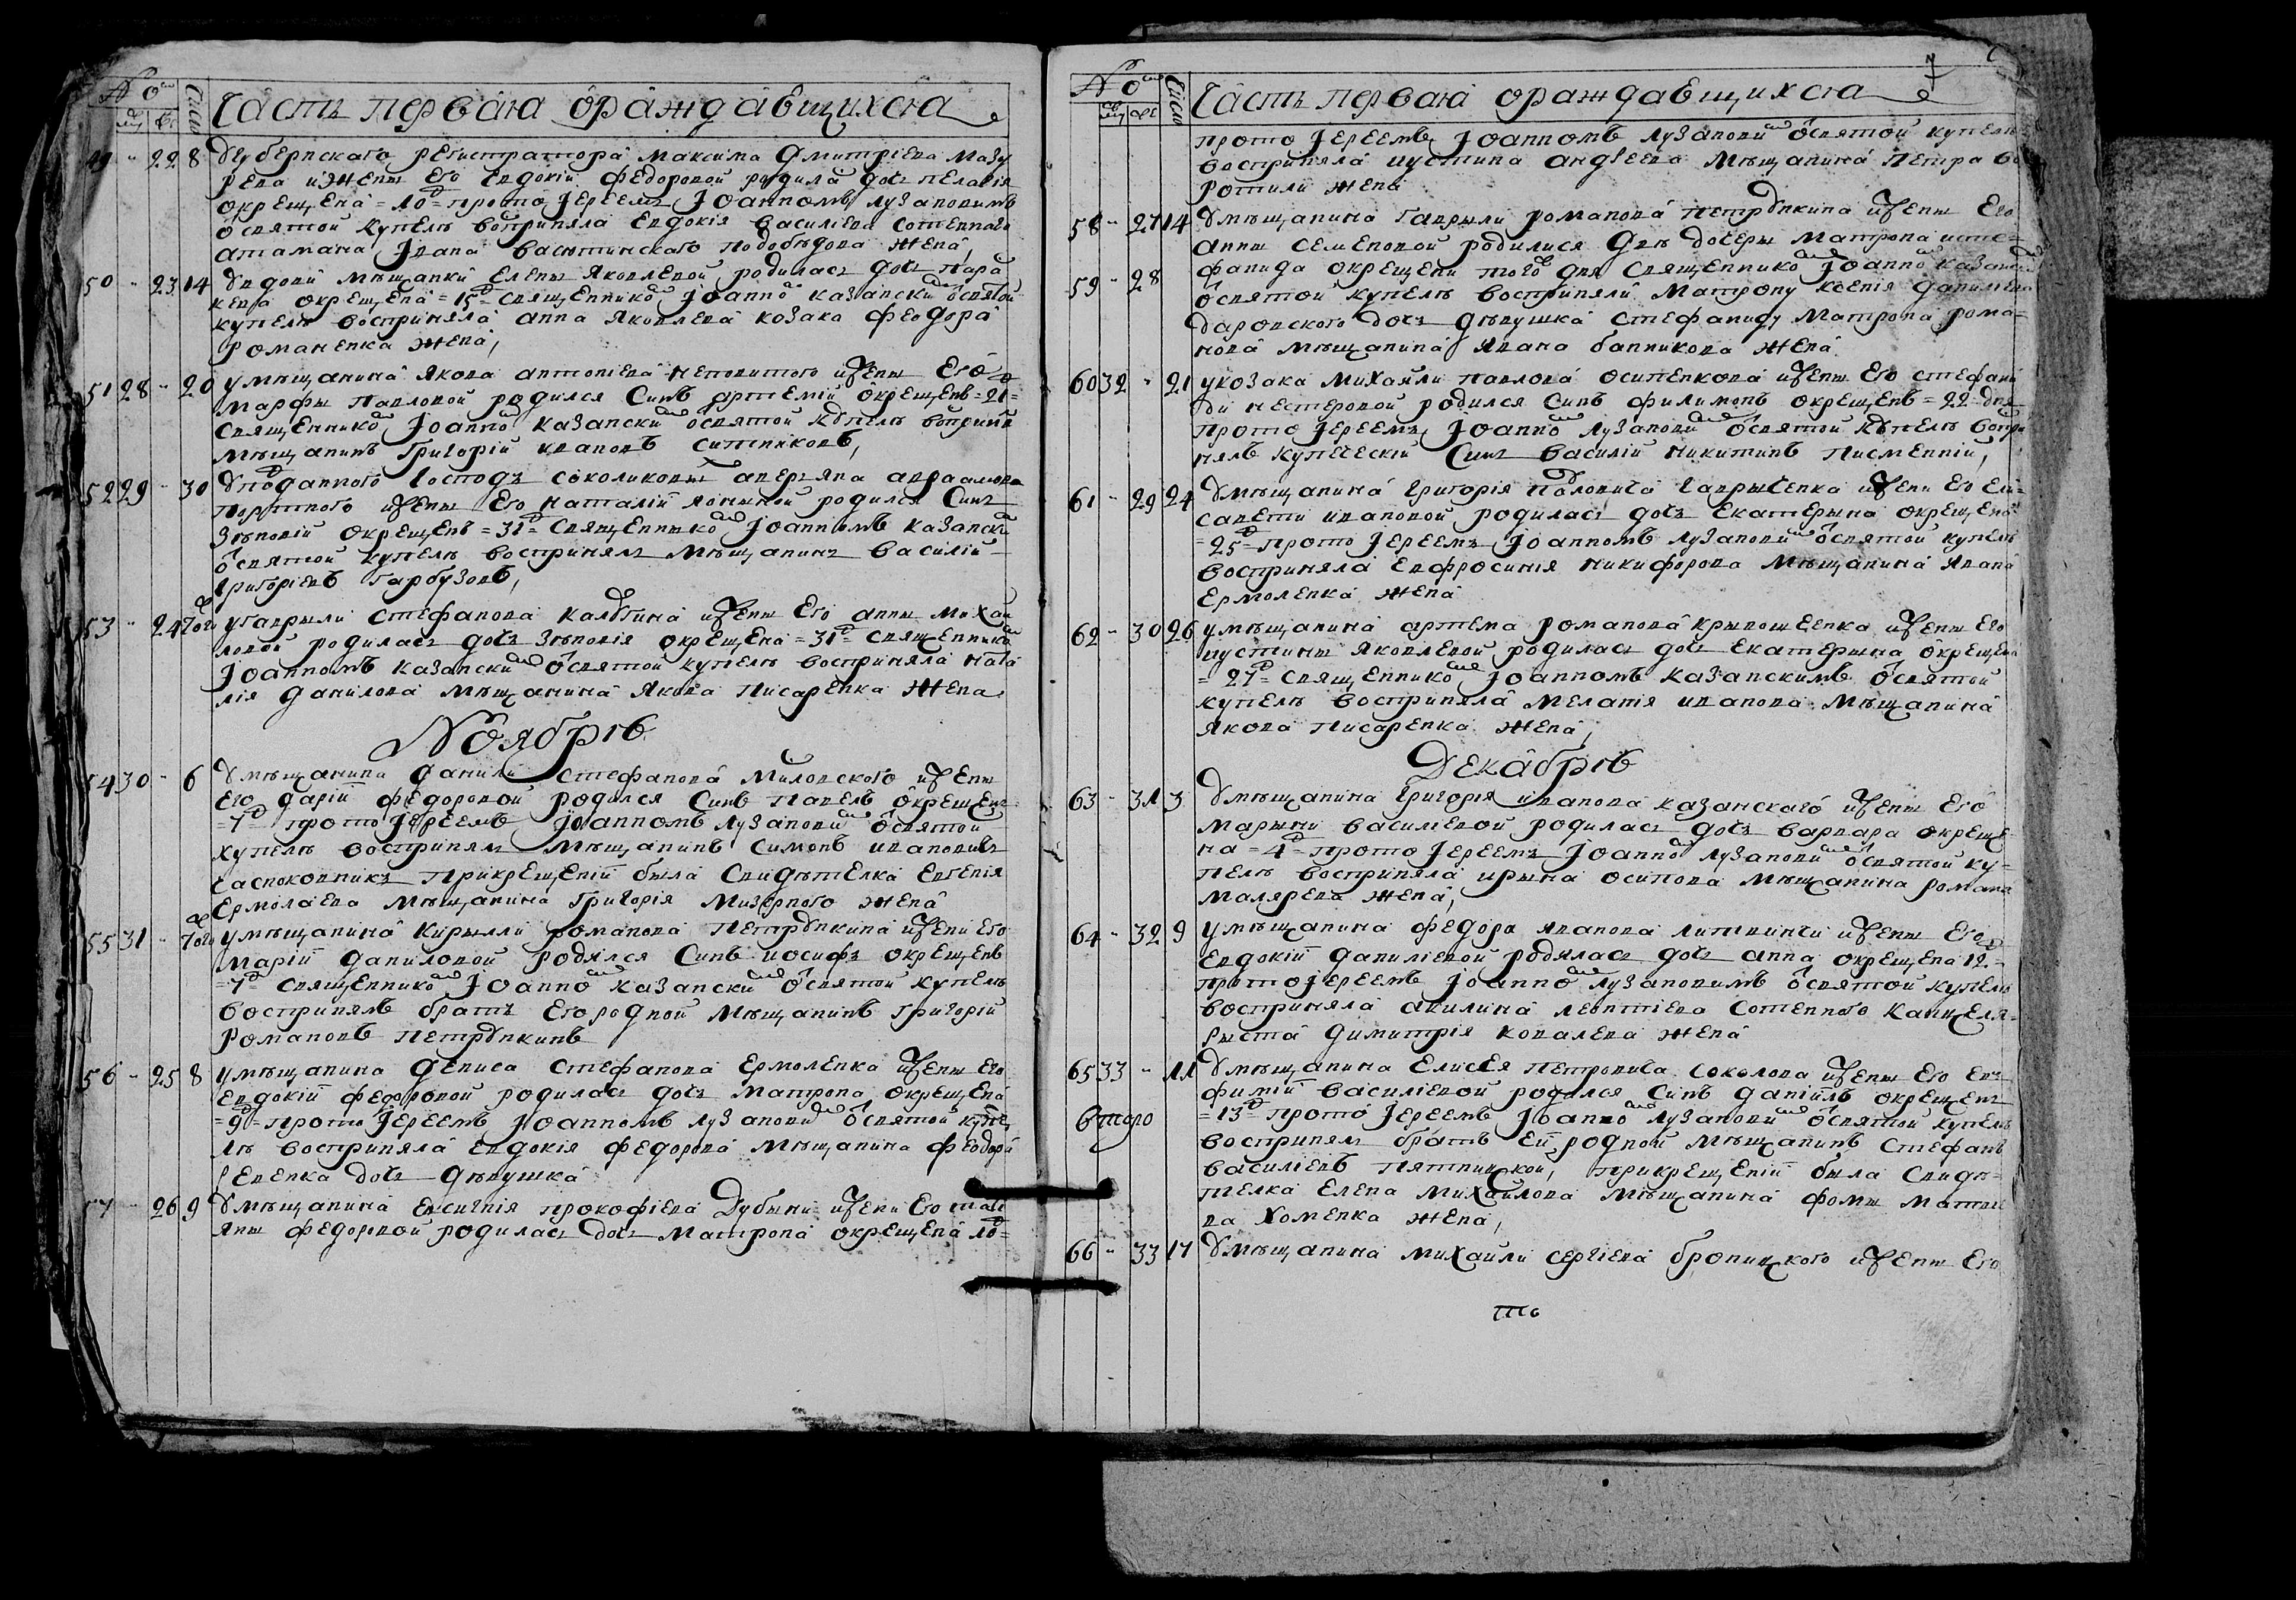 № о
Число
Часть первая ораждавщихся
49 - 22 8 Угубернского регистратора Максима Дмитриева Мазу
рева ижены его Евдокіи федоровой родила дочь пелагія
окрещена = 10 = прото Іереемъ Іоанномъ Лузановимъ
освятой купелѣ воприняла Евдокія василіева сотенного
атамана Ивана васютинского подобѣдова жена,
50 - 23 14 Увдовй мѣщанкй Елены Яковлевой родилась дочь пара
кева окрещена = 15 = священнико Іоанно казански освятой
купелѣ восприняла анна Яковлева козака феодора
Романенка жена,
51 28 - 20 умѣщанина Якова антоніева неповитого ижены Его
Марфы павловой родился Синъ артемій окрещенъ = 21 =
священнико Іоанно казански освятой купелѣ вопринял
мѣщанинъ Григорій ивановъ ситниковъ,
52 29 - 30 Уподанного господъ соколиковы аверяна авраамова
портного ижены Его Наталіи родился Синъ
Зѣновій окрещенъ = 31 = священнико Іоанномъ казански
освятой купелѣ воспринялъ мѣщанинъ василій
григоріевъ гарбузовъ,
53 - 24 того угаврыли стефанова калюжина ижены Его анны михай
ловой родилась дочь зѣновія окрещена = 31 = священнико
Іоанномъ казански освятой купелѣ восприняла ната
лія данилова мѣщанина Якова писаренка жена
Ноябрѣ
54 30 - 6 Умѣщанина данили стефанова Миловского ижены
Его даріи федоровой родился Синъ павелъ окрещенъ
= 7 = прото Іереемъ Іоанномъ Лузанови освятой
купелѣ воспринялъ мѣщанинъ симонъ ивановичъ
часпоковникъ прикрещеніи была свидѣтелка Евгенія
Ермолаева мѣщанина григорія мизерного жена
55 31 - того умѣщанина кирылли романова петрункина ижени его
Маріи даниловой родился Синъ иосифъ окрещенъ
= 7 = священнико Іоанно казански освятой купелѣ
воспринялъ братъ Егородной мѣщанинъ григорій
романовъ петрункинъ
56 - 25 8 умѣщанина дениса стефанова Ермоленка ижены Его
Евдокіи федоровой родилась дочь матрона окрещена
= 9 = прото Іереемъ Іоанномъ Лузанови освятой купе
лѣ восприняла Евдокія федорова мѣщанина феодора
дочь дѣвушка
57 - 26 9 Умѣщанина Евсигнія прокофіева Дубыни ижени Его тате
яны федоровой родилась дочь Матрона окрещена 10 =
7
№ о
Число
Часть первая ораждавщихся
прото Іереемъ Іоанномъ Лузанови освятой купелѣ
восприняла иустина андреева мѣщанина петра во
ротили жена
58 - 27 14 Умѣщанина гаврыли романова петрункина ижены Его
анны семеновой родилися двѣ дочеры Матрона исте-
59 - 28 фанида окрещени того дня священнико Іоанно казански
освятой купелѣ восприняли матрону ксенія данилева
даровского дочь дѣвушка стефаниду матрона рома-
нова мѣщанина Ивана банникова жена
60 32 - 21 укозака михайли павлова осипенкова ижены Его стефани
ди нестеровой родился Синъ филимонъ окрещенъ = 22 дня
прото Іереемъ Іоанно Лузанови освятой купелѣ вопри
нялъ купеческій Синъ василій никитинъ писменній,
61 - 29 24 Умѣщанина григорія павловича гаврыченка ижени Его ели-
савети ивановой родилась дочь Екатерына окрещена
= 25 = прото Іереемъ Іоанномъ Лузанови освятой купелѣ
восприняла Евфросинія никифорова мѣщанина Ивана
Ермоленка жена
62 - 30 26 умѣщанина артема романова крывошеенка ижены Его
иустины Яковлевой родилась дочь Екатерына окрещена
= 27 = священнико Іоанномъ казанскимъ освятой
купелѣ восприняла мелатія иванова мѣщанина
Якова писаренка жена,
Декабрѣ
63 - 31 3 Умѣщанина григорія иванова казанского ижены Его
марыни василіевой родилась дочь варвара окреще
на = 4 = прото Іереемъ Іоанно Лузанови освятой ку-
пелѣ восприняла ирына осипова мѣщанина романа
малярева жена,
64 - 32 9 умѣщанина федора Иванова литвинчи ижены Его
Евдокіи даниліевой родилась дочь анна окрещена 12 =
протоІереемъ Іоанно Лузановимъ освятой купелѣ
восприняла акилина леонтіева сотенного канцеля-
рыста димитрія ковалева жена
65 33 - 11 Умѣщанина Елисея петровича соколова ижены Его Ев
фиміи василіевой родился Синъ даніилъ окрещенъ
второ = 13 = прото Іереемъ Іоанно Лузанови освятой купелѣ
воспринялъ братъ еи родной мѣщанинъ стефанъ
василіевъ пятницкой, прикрещеніи была свидѣ-
телка Елена михайлова мѣщанина фомы матве
ва хоменка жена,
66 - 33 17 Умѣщанина михайли сергіева броницкого ижены Его